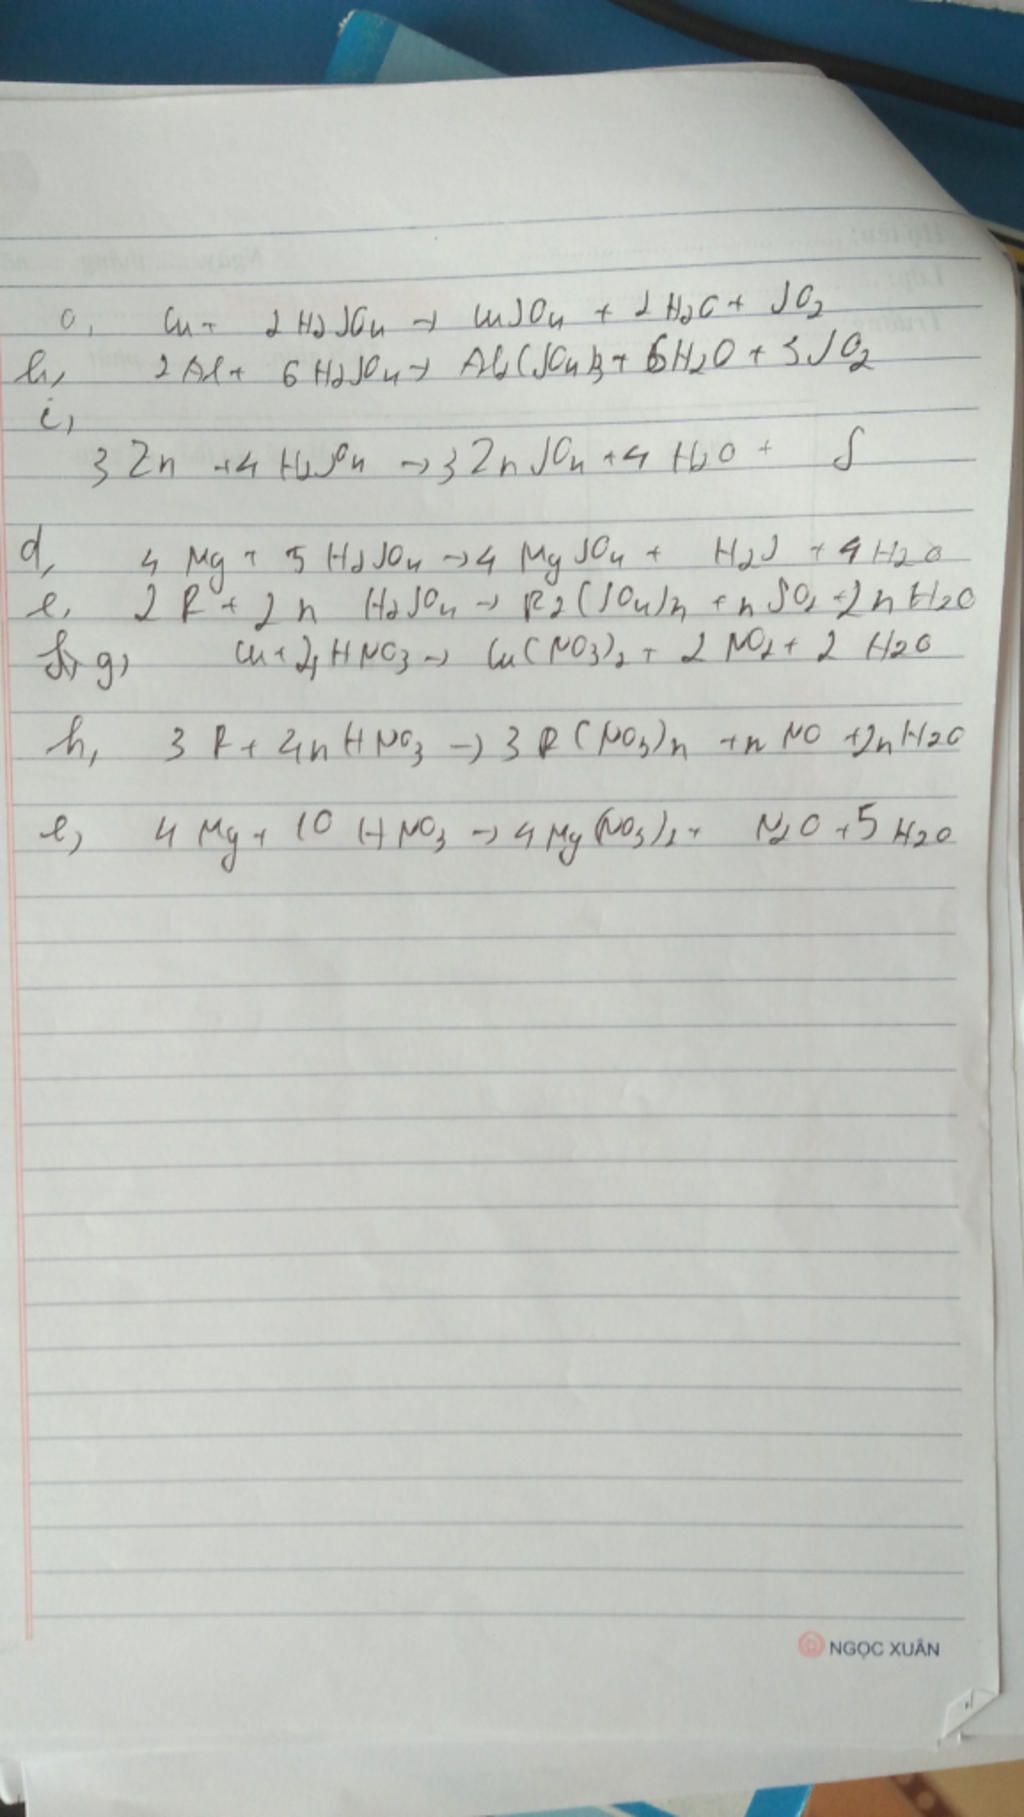 a, Cu + 2H2SO4 → CuSO4 + 2H2O + SO2
b, 2Al + 6H2SO4 → Al2(SO4)3 + 6H2O + 3SO2
c,
3Zn + 4H2SO4 → 3ZnSO4 + 4H2O + S
d, 4Mg + 5H2SO4 → 4MgSO4 + H2S + 4H2O
e, 2R + 2n H2SO4 → R2(SO4)n + nSO2 + 2nH2O
g, Cu + 4HNO3 → Cu(NO3)2 + 2NO2 + 2H2O
h, 3R + 4nHNO3 → 3R(NO3)n + nNO + 2nH2O
e, 4Mg + 10HNO3 → 4Mg(NO3)2 + N2O + 5H2O
NGỌC XUÂN